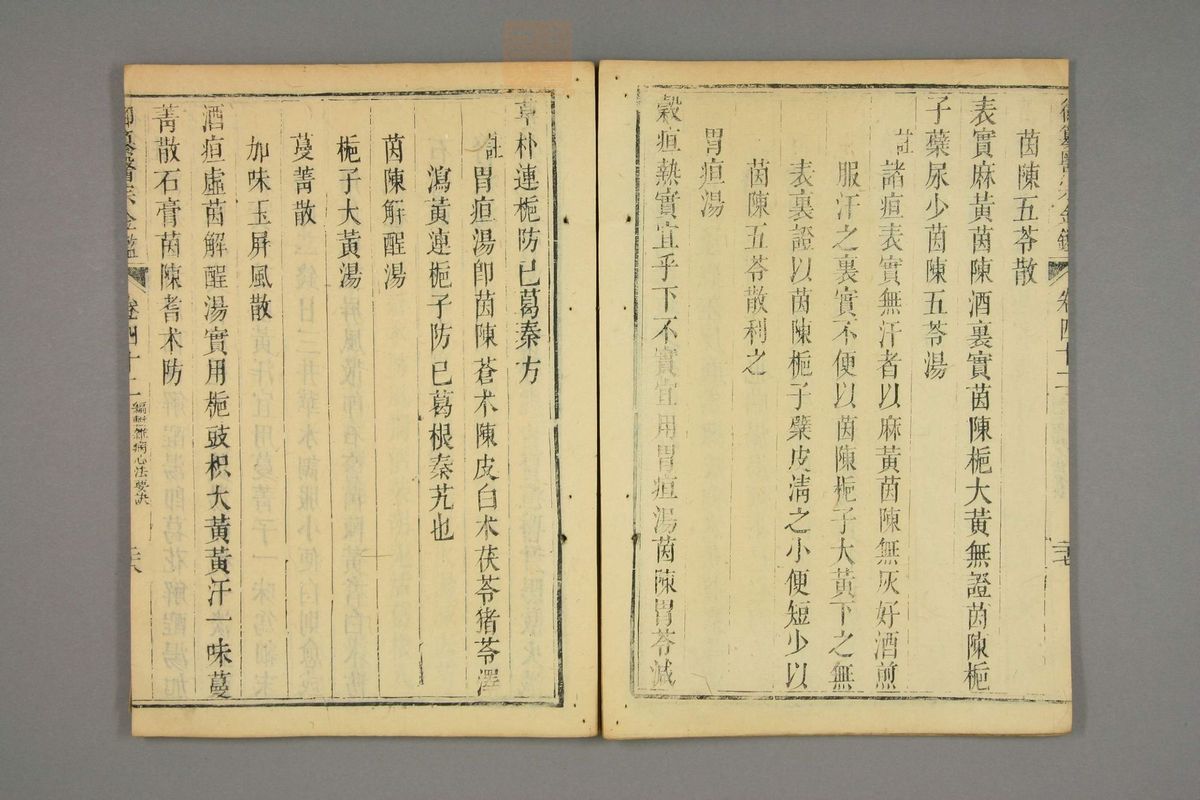 茵陳五苓散
表實麻黃茵陳酒裏實茵陳梔大黃無證茵陳梔
子蘗尿少茵陳五苓湯
註諸疸表實無汗者以麻黃茵陳無灰好酒煎
服汗之裏實不便以茵陳梔子大黃下之無
表裏證以茵陳梔子檗皮淸之小便短少以
茵陳五苓散利之
胃疸湯
穀疸熱實宜乎下不實宜用胃疸湯茵陳胃苓減
草朴連梔防已葛秦方
註胃疸湯卽茵陳蒼朮陳皮白朮茯苓猪苓澤
瀉黃連梔子防已葛根秦艽也
茵陳解酲湯
梔子大黃湯
蔓菁散
加味玉屏風散
酒疸虛茵解酲湯實用梔豉枳大黃黃汗一味蔓
菁散石膏茵陳耆朮防
御纂醫宗金鑑
卷四十二
編輯雜病心法要訣